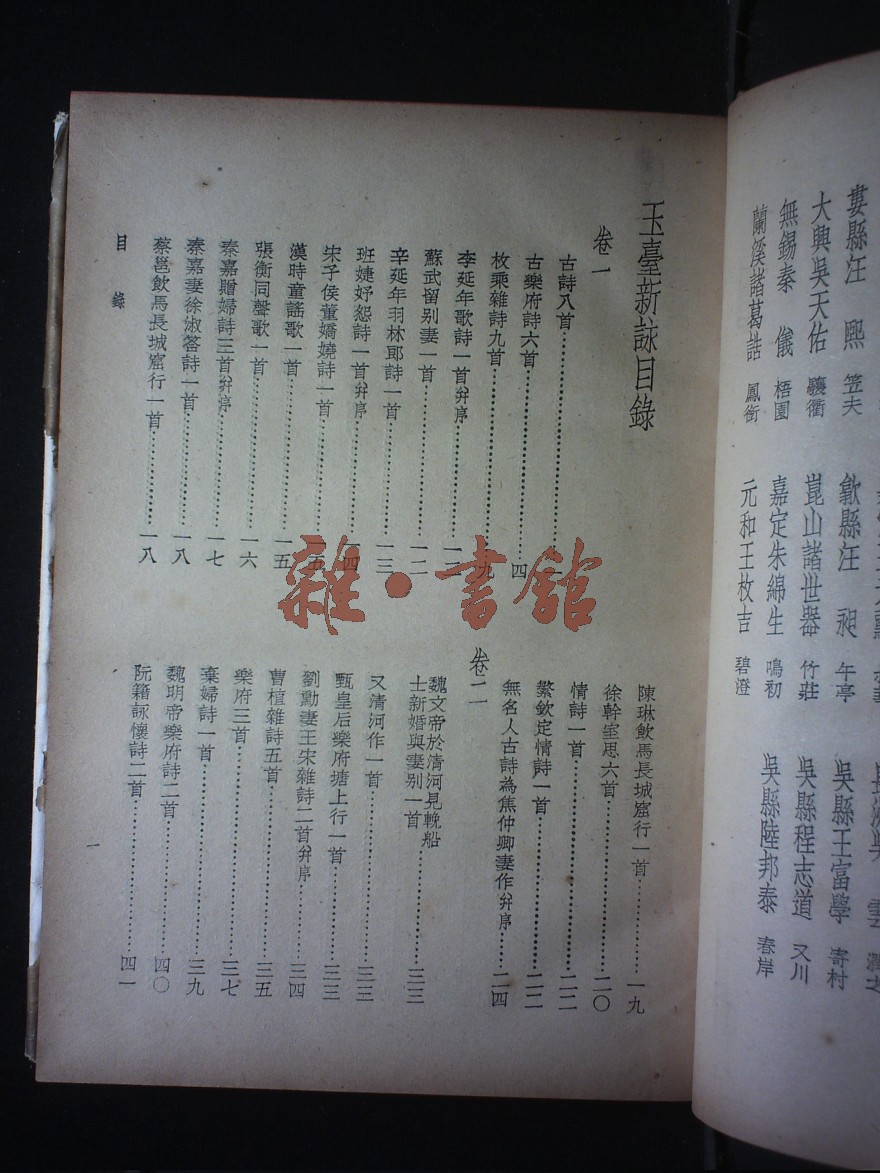 婁縣汪 熙 笠夫
大興吳天佑 驤衢
無錫秦 儀 梧園
蘭溪諸葛誥 鳳銜
歙縣汪 昶 午亭
崑山諸世器 竹莊
嘉定朱綿生 鳴初
元和王枚吉 碧澄
吳縣王富學 寄村
吳縣程志道 又川
吳縣陸邦泰 春岸
玉臺新詠目錄
卷一
古詩八首…一
古樂府詩六首…四
枚乘雜詩九首…九
李延年歌詩一首并序…一二
蘇武留别妻一首…一二
辛延年羽林郎詩一首…一三
班婕妤怨詩一首并序…一四
宋子侯董嬌嬈詩一首…一五
漢時童謠歌一首…一五
張衡同聲歌一首…一六
秦嘉贈婦詩三首并序…一七
秦嘉妻徐淑答詩一首…一八
蔡邕飲馬長城窟行一首…一八
陳琳飲馬長城窟行一首…一九
徐幹室思六首…二〇
情詩一首…二二
繁欽定情詩一首…二二
無名人古詩為焦仲卿妻作并序…二四
卷二
魏文帝於清河見輓船
士新婚與妻别一首…三三
又清河作一首…三三
甄皇后樂府塘上行一首…三三
劉勳妻王宋雜詩二首并序…三四
曹植雜詩五首…三五
樂府三首…三七
棄婦詩一首…三九
魏明帝樂府詩二首…四〇
阮籍詠懷詩二首…四一
目錄
一
雜·書館